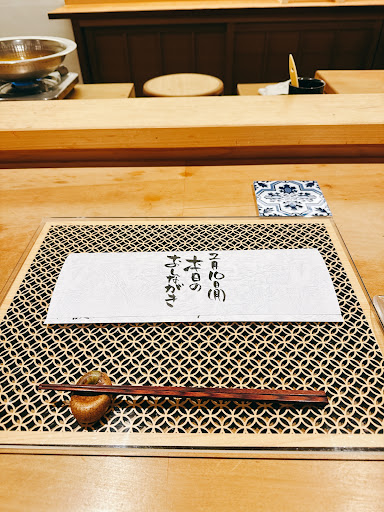 2月10日(月)
本日の
おしながき